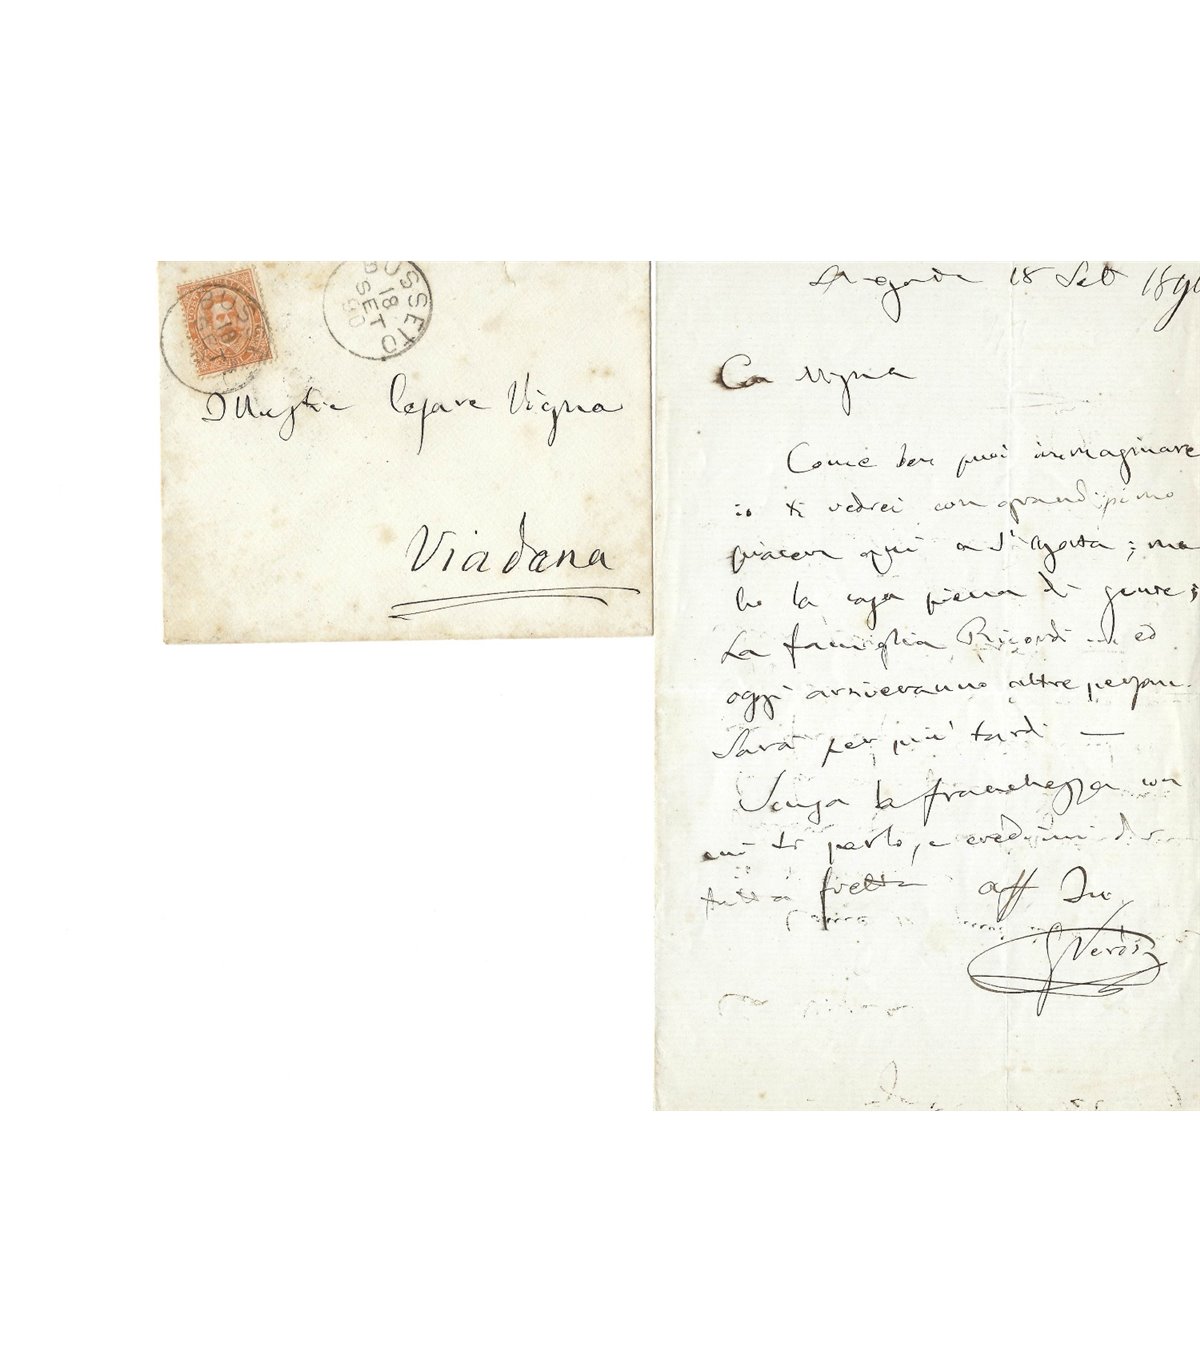 BUSSETO
18
SET
90
Illustre Cesare Vigna
Viadana
S Agata 18 Set 1890
Car Vigna
Come ben puoi immaginare
io ti vedrei con grandissimo
piacer qui a St Agata; ma
ho la casa piena di gente;
La famiglia Ricordi ... ed
oggi arriveranno altre persone.
Sara per piu' tardi —
Scusa la franchezza con
cui ti parlo, e credimi di
tutta fretta aff Tuo
G Verdi